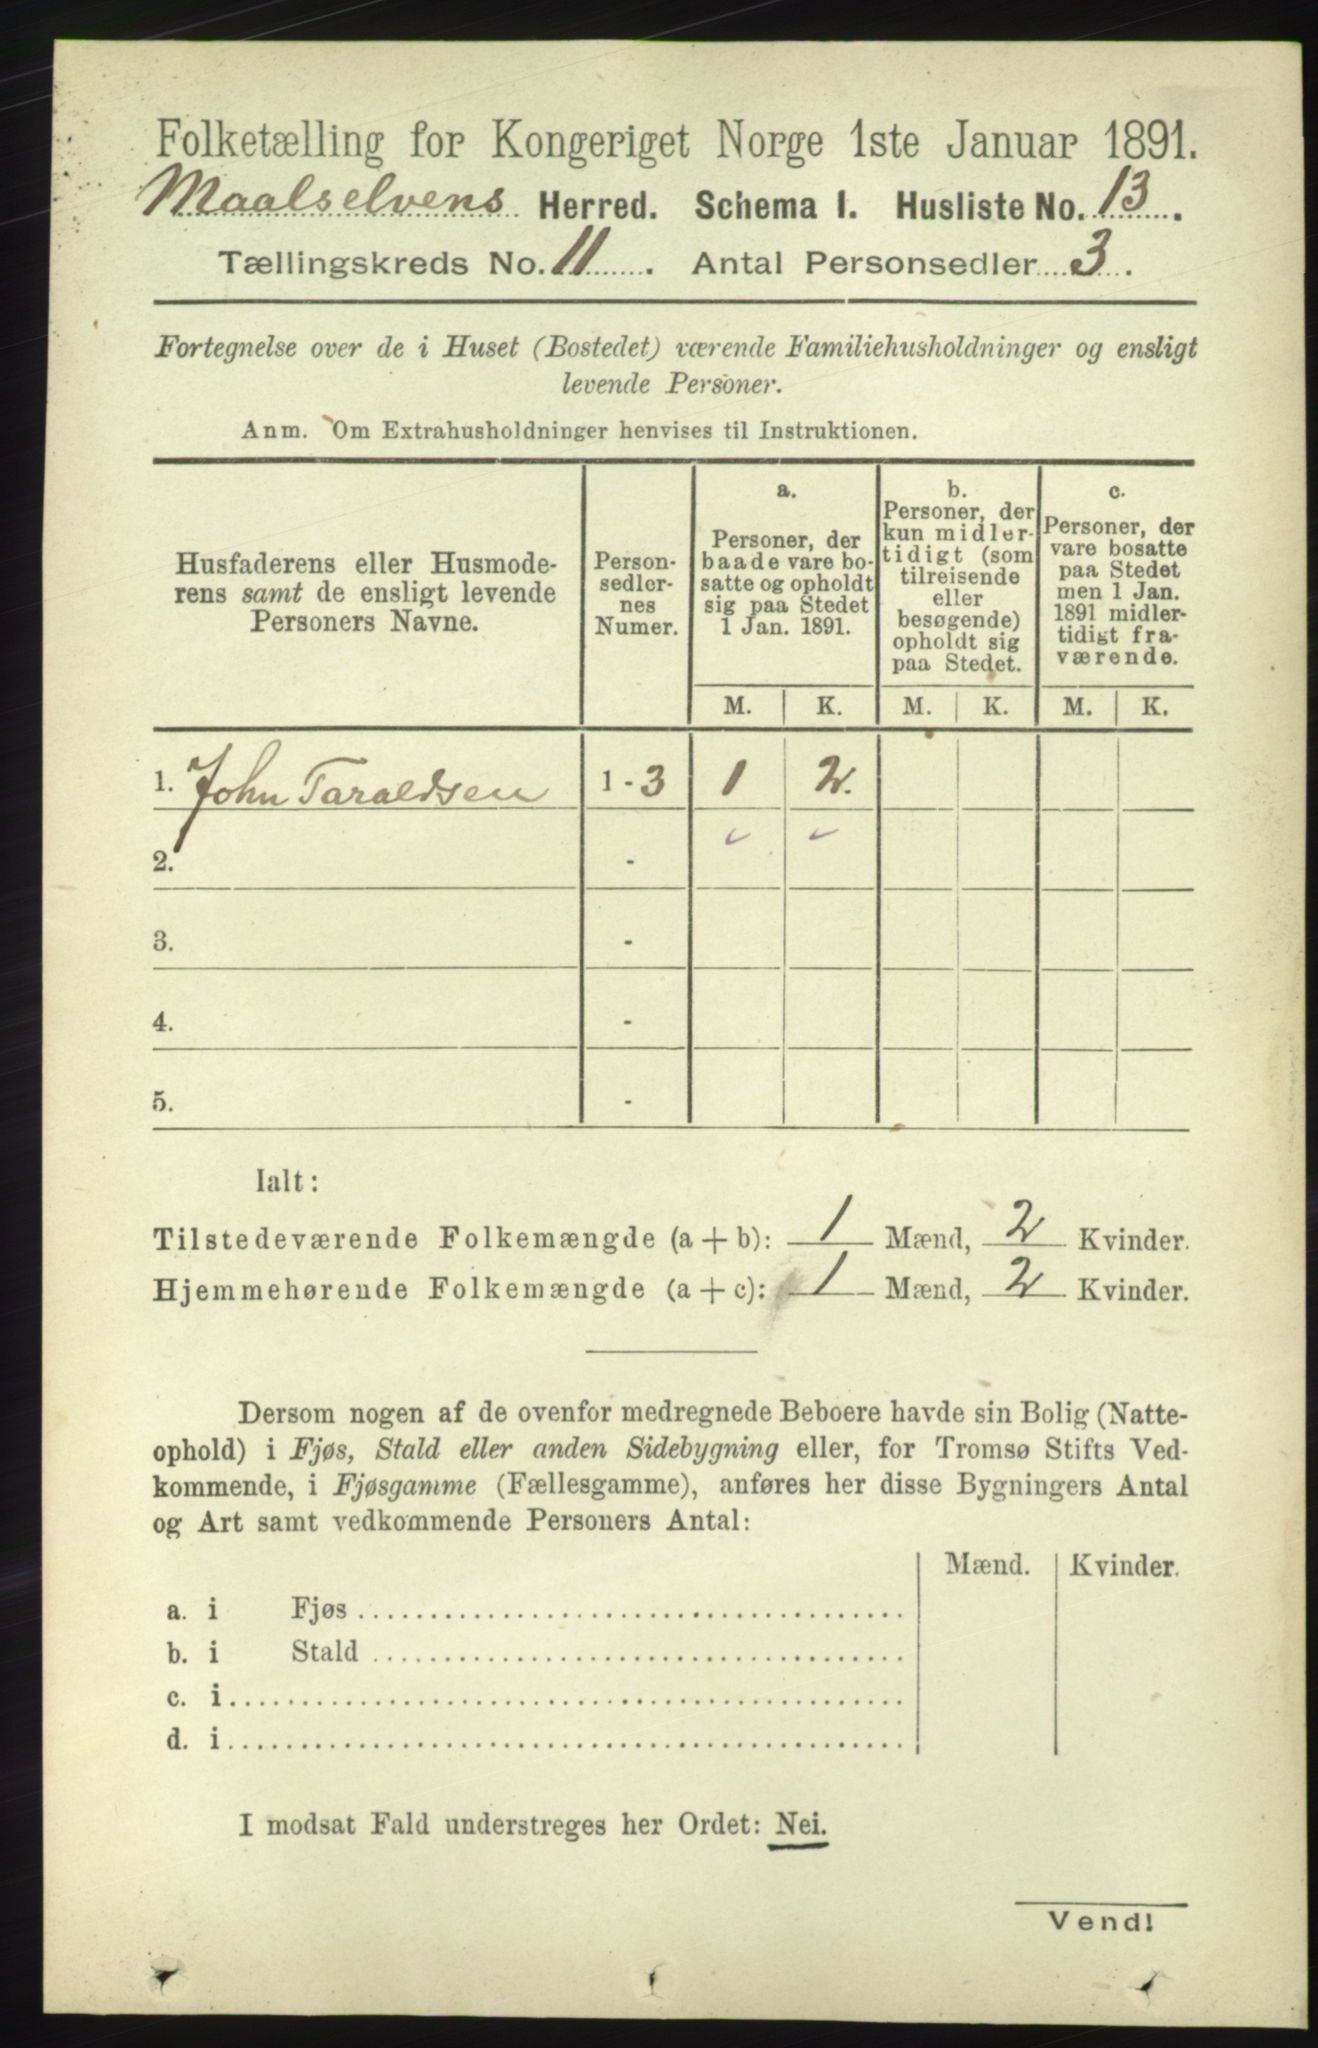 Folketælling for Kongeriget Norge 1ste Januar 1891.
Maalselvens Herred. Schema I. Husliste No. 13.
Tællingskreds No. 11. Antal Personsedler 3.
Fortegnelse over de i Huset (Bostedet) værende Familiehusholdninger og ensligt
levende Personer.
Anm. Om Extrahusholdninger henvises til Instruktionen.
Husfaderens eller Husmode-
rens samt de ensligt levende
Personers Navne.
Person-
sedler-
nes
Numer.
a.
Personer, der
baade vare bo-
satte og opholdt
sig paa Stedet
1 Jan. 1891.
b.
Personer, der
kun midler-
tidigt (som
tilreisende
eller
besøgende)
opholdt sig
paa Stedet.
c.
Personer, der
vare bosatte
paa Stedet
men 1 Jan.
1891 midler-
tidigt fra-
værende.
M. K. M. K. M. K.
1. John Taraldsen 1 - 3 1 2.
2. -
3. -
4. -
5. -
Ialt:
Tilstedeværende Folkemængde (a + b): 1 Mænd, 2 Kvinder.
Hjemmehørende Folkemængde (a + c): 1 Mænd, 2 Kvinder.
Dersom nogen af de ovenfor medregnede Beboere havde sin Bolig (Natte-
ophold) i Fjøs, Stald eller anden Sidebygning eller, for Tromsø Stifts Ved-
kommende, i Fjøsgamme (Fællesgamme), anføres her disse Bygningers Antal
og Art samt vedkommende Personers Antal:
Mænd. Kvinder.
a. i Fjøs
b. i Stald
c. i
d. i
I modsat Fald understreges her Ordet: Nei.
Vend!